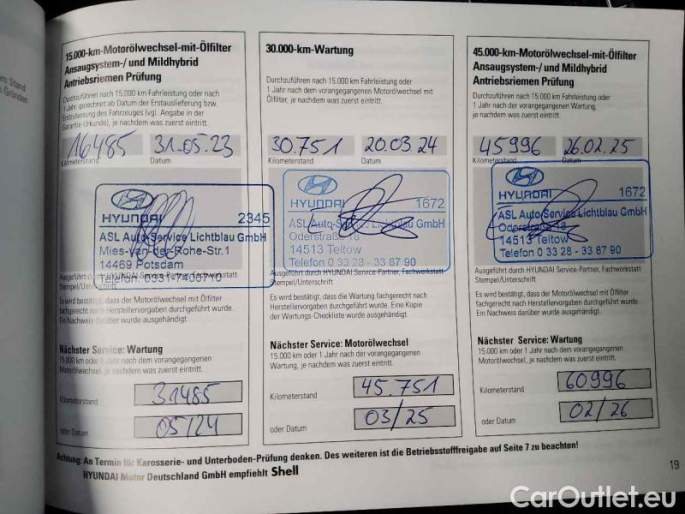 15.000-km-Motorölwechsel-mit-Ölfilter
Ansaugsystem-/ und Mildhybrid
Antriebsriemen Prüfung
Durchzuführen nach 15.000 km Fahrleistung oder
1 Jahr gerechnet ab Datum der Erstauslieferung bzw.
Erstzulassung des Fahrzeuges (vgl. Angabe in der
Garantie-Urkunde), je nachdem was zuerst eintritt.
16485 31.05.23
Kilometerstand Datum
HYUNDAI 2345
ASL Auto-Service Lichtblau GmbH
Mies-van-der-Rohe-Str.1
14469 Potsdam
Telefon: 0331-7400710
Ausgeführt durch HYUNDAI Service-Partner, Fachwerkstatt
Stempel/Unterschrift
Es wird bestätigt, dass der Motorölwechsel mit Ölfilter
fachgerecht nach Herstellervorgaben durchgeführt wurde.
Ein Nachweis darüber wurde ausgehändigt.
Nächster Service: Wartung
15.000 km oder 1 Jahr nach dem vorangegangenen
Motorölwechsel, je nachdem was zuerst eintritt.
Kilometerstand 31485
oder Datum 05/24
30.000-km-Wartung
Durchzuführen nach 15.000 km Fahrleistung oder
1 Jahr nach dem vorangegangenen Motorölwechsel mit
Ölfilter, je nachdem was zuerst eintritt.
30.751 20.03.24
Kilometerstand Datum
HYUNDAI 1672
ASL Auto-Service Lichtblau GmbH
Oderstraße 18
14513 Teltow
Telefon 0 33 28 - 33 87 90
Ausgeführt durch HYUNDAI Service-Partner, Fachwerkstatt
Stempel/Unterschrift
Es wird bestätigt, dass die Wartung fachgerecht nach
Herstellervorgaben durchgeführt wurde. Eine Kopie
der Wartungs-Checkliste wurde ausgehändigt.
Nächster Service: Motorölwechsel
15.000 km oder 1 Jahr nach der vorangegangenen
Wartung, je nachdem was zuerst eintritt.
Kilometerstand 45.751
oder Datum 03/25
45.000-km-Motorölwechsel-mit-Ölfilter
Ansaugsystem-/ und Mildhybrid
Antriebsriemen Prüfung
Durchzuführen nach 15.000 km Fahrleistung oder
1 Jahr nach der vorangegangenen Wartung,
je nachdem was zuerst eintritt.
45996 26.02.25
Kilometerstand Datum
HYUNDAI 1672
ASL Auto-Service Lichtblau GmbH
Oderstraße 18
14513 Teltow
Telefon 0 33 28 - 33 87 90
Ausgeführt durch HYUNDAI Service-Partner, Fachwerkstatt
Stempel/Unterschrift
Es wird bestätigt, dass der Motorölwechsel mit Ölfilter
fachgerecht nach Herstellervorgaben durchgeführt wurde.
Ein Nachweis darüber wurde ausgehändigt.
Nächster Service: Wartung
15.000 km oder 1 Jahr nach dem vorangegangenen
Motorölwechsel, je nachdem was zuerst eintritt.
Kilometerstand 60996
oder Datum 02/26
Achtung: An Termin für Karosserie- und Unterboden-Prüfung denken. Des weiteren ist die Betriebsstofffreigabe auf Seite 7 zu beachten!
HYUNDAI Motor Deutschland GmbH empfiehlt Shell
19
CarOutlet.eu